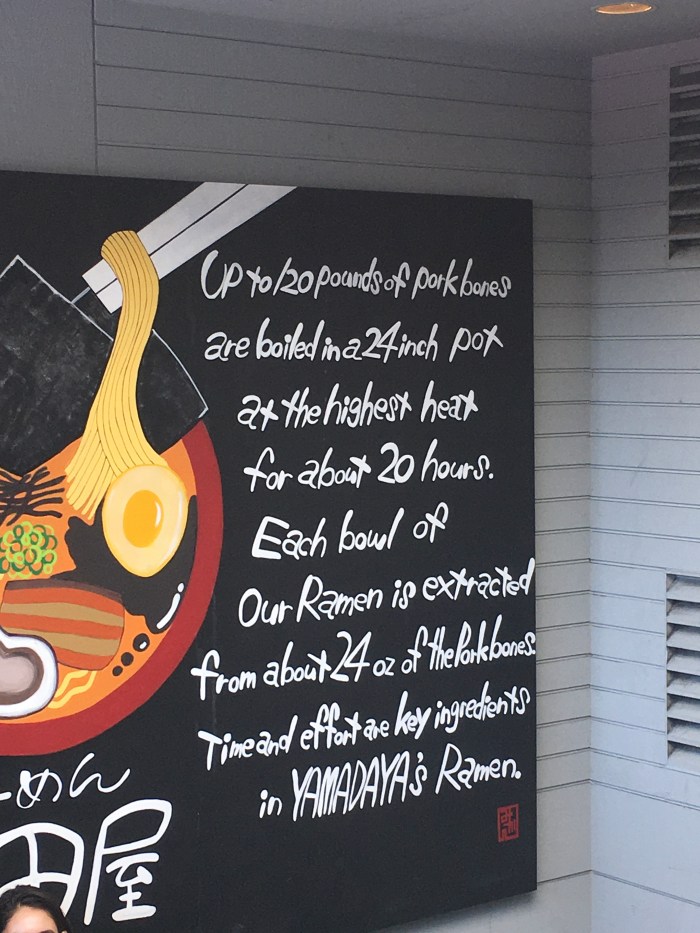 Up to 120 pounds of pork bones
are boiled in a 24 inch pot
at the highest heat
for about 20 hours.
Each bowl of
Our Ramen is extracted
from about 24 oz of the Pork bones.
Time and effort are key ingredients
in YAMADAYA's Ramen.
ーめん
田屋